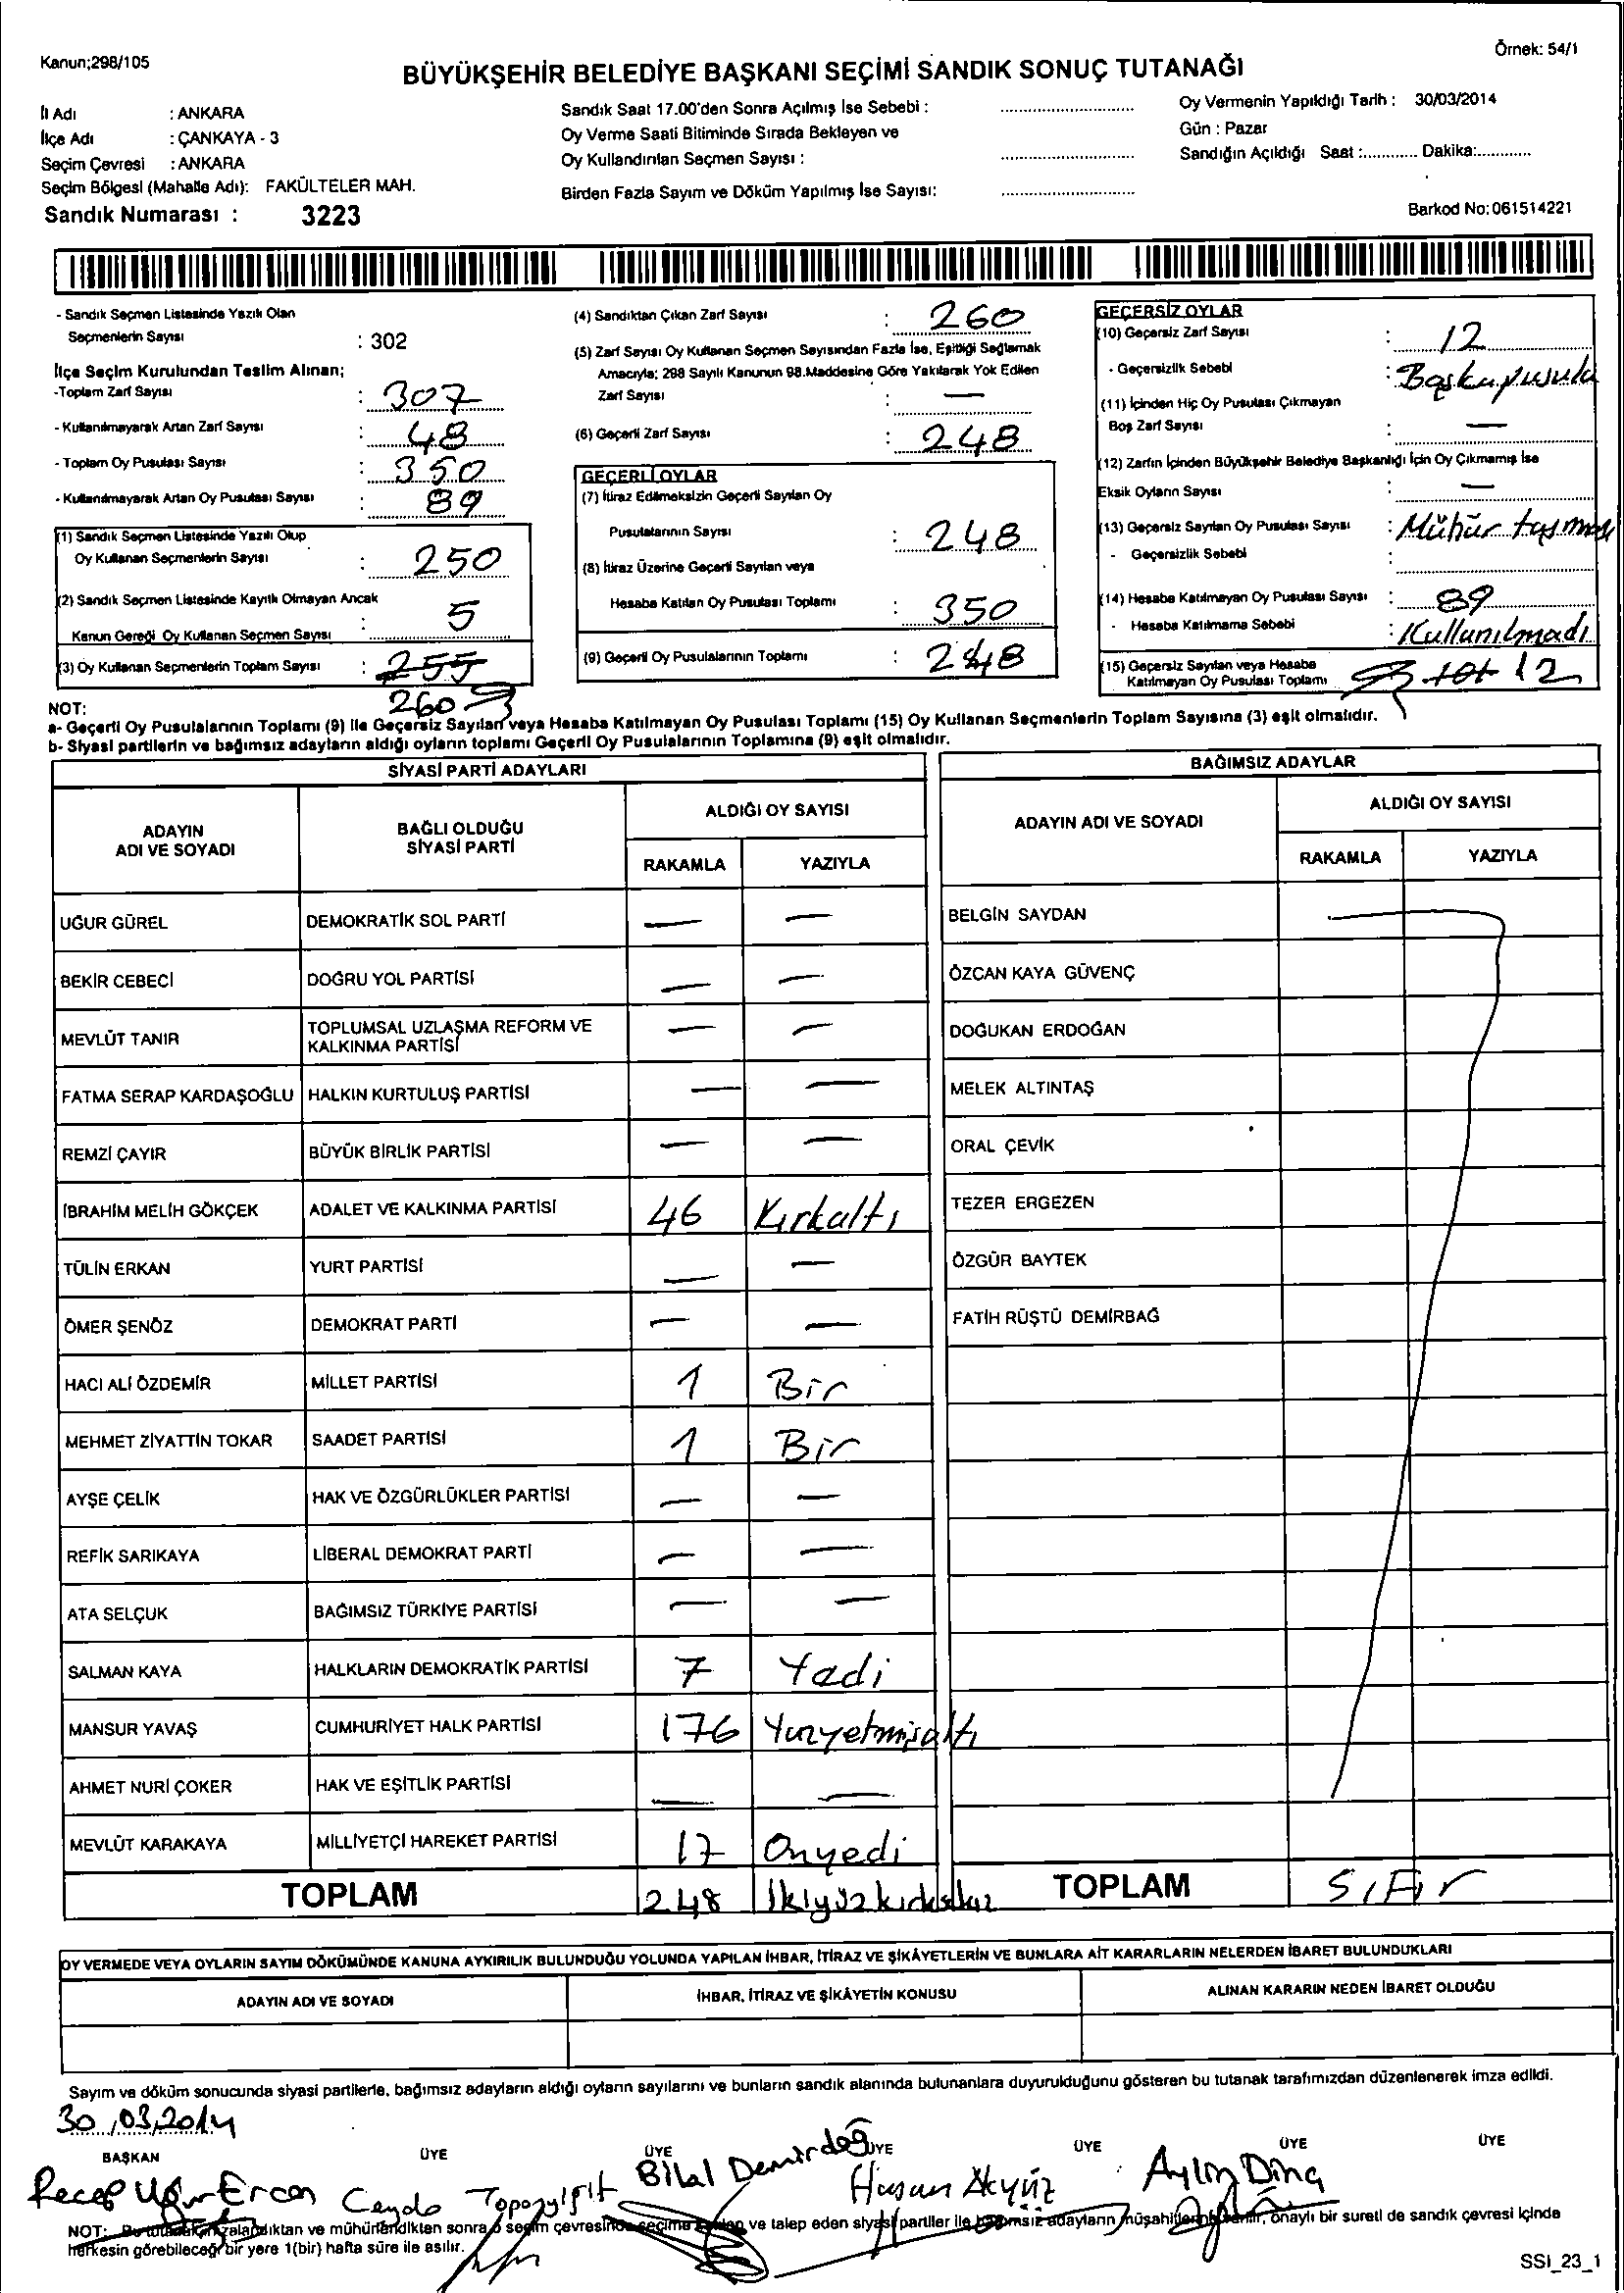 Kanun;298/105
Örnek: 54/1
BÜYÜKŞEHİR BELEDİYE BAŞKANI SEÇİMİ SANDIK SONUÇ TUTANAĞI
İl Adı : ANKARA
İlçe Adı : ÇANKAYA - 3
Seçim Çevresi : ANKARA
Seçim Bölgesi (Mahalle Adı): FAKÜLTELER MAH.
Sandık Numarası : 3223
Sandık Saat 17.00'den Sonra Açılmış İse Sebebi :
Oy Verme Saati Bitiminde Sırada Bekleyen ve
Oy Kullandırılan Seçmen Sayısı :
Birden Fazla Sayım ve Döküm Yapılmış İse Sayısı:
Oy Vermenin Yapıldığı Tarih : 30/03/2014
Gün : Pazar
Sandığın Açıldığı Saat :............ Dakika:............
Barkod No: 061514221
- Sandık Seçmen Listesinde Yazılı Olan
Seçmenlerin Sayısı : 302
İlçe Seçim Kurulundan Teslim Alınan;
-Toplam Zarf Sayısı : 307
- Kullanılmayarak Artan Zarf Sayısı : 48
- Toplam Oy Pusulası Sayısı : 350
- Kullanılmayarak Artan Oy Pusulası Sayısı : 89
(1) Sandık Seçmen Listesinde Yazılı Olup
Oy Kullanan Seçmenlerin Sayısı : 250
(2) Sandık Seçmen Listesinde Kayıtlı Olmayan Ancak
Kanun Gereği Oy Kullanan Seçmen Sayısı : 5
(3) Oy Kullanan Seçmenlerin Toplam Sayısı : 255
260
(4) Sandıktan Çıkan Zarf Sayısı : 260
(5) Zarf Sayısı Oy Kullanan Seçmen Sayısından Fazla İse, Eşitliği Sağlamak
Amacıyla; 298 Sayılı Kanunun 98.Maddesine Göre Yakılarak Yok Edilen
Zarf Sayısı : —
(6) Geçerli Zarf Sayısı : 248
GEÇERLİ OYLAR
(7) İtiraz Edilmeksizin Geçerli Sayılan Oy
Pusulalarının Sayısı : 248
(8) İtiraz Üzerine Geçerli Sayılan veya
Hesaba Katılan Oy Pusulası Toplamı : 350
(9) Geçerli Oy Pusulalarının Toplamı : 248
GEÇERSİZ OYLAR
(10) Geçersiz Zarf Sayısı : 12
- Geçersizlik Sebebi : Başka pusula
(11) İçinden Hiç Oy Pusulası Çıkmayan
Boş Zarf Sayısı : —
(12) Zarfın İçinden Büyükşehir Belediye Başkanlığı İçin Oy Çıkmamış İse
Eksik Oyların Sayısı : —
(13) Geçersiz Sayılan Oy Pusulası Sayısı : Mühür taşması
- Geçersizlik Sebebi :
(14) Hesaba Katılmayan Oy Pusulası Sayısı : 89
- Hesaba Katılmama Sebebi : Kullanılmadı
(15) Geçersiz Sayılan veya Hesaba
Katılmayan Oy Pusulası Toplamı 101 12
NOT:
a- Geçerli Oy Pusulalarının Toplamı (9) ile Geçersiz Sayılan veya Hesaba Katılmayan Oy Pusulası Toplamı (15) Oy Kullanan Seçmenlerin Toplam Sayısına (3) eşit olmalıdır.
b- Siyasi partilerin ve bağımsız adayların aldığı oyların toplamı Geçerli Oy Pusulalarının Toplamına (9) eşit olmalıdır.
SİYASİ PARTİ ADAYLARI
ADAYIN ADI VE SOYADI
BAĞLI OLDUĞU SİYASİ PARTİ
ALDIĞI OY SAYISI
RAKAMLA YAZIYLA
UĞUR GÜREL DEMOKRATİK SOL PARTİ — —
BEKİR CEBECİ DOĞRU YOL PARTİSİ — —
MEVLÜT TANIR TOPLUMSAL UZLAŞMA REFORM VE KALKINMA PARTİSİ — —
FATMA SERAP KARDAŞOĞLU HALKIN KURTULUŞ PARTİSİ — —
REMZİ ÇAYIR BÜYÜK BİRLİK PARTİSİ — —
İBRAHİM MELİH GÖKÇEK ADALET VE KALKINMA PARTİSİ 46 Kırkaltı
TÜLİN ERKAN YURT PARTİSİ — —
ÖMER ŞENÖZ DEMOKRAT PARTİ — —
HACI ALİ ÖZDEMİR MİLLET PARTİSİ 1 Bir
MEHMET ZİYATTİN TOKAR SAADET PARTİSİ 1 Bir
AYŞE ÇELİK HAK VE ÖZGÜRLÜKLER PARTİSİ — —
REFİK SARIKAYA LİBERAL DEMOKRAT PARTİ — —
ATA SELÇUK BAĞIMSIZ TÜRKİYE PARTİSİ — —
SALMAN KAYA HALKLARIN DEMOKRATİK PARTİSİ 7 Yedi
MANSUR YAVAŞ CUMHURİYET HALK PARTİSİ 176 Yüzyetmişaltı
AHMET NURİ ÇOKER HAK VE EŞİTLİK PARTİSİ — —
MEVLÜT KARAKAYA MİLLİYETÇİ HAREKET PARTİSİ 17 Onyedi
TOPLAM 248 İkiyüzkırksekiz
BAĞIMSIZ ADAYLAR
ADAYIN ADI VE SOYADI
ALDIĞI OY SAYISI
RAKAMLA YAZIYLA
BELGİN SAYDAN
ÖZCAN KAYA GÜVENÇ
DOĞUKAN ERDOĞAN
MELEK ALTINTAŞ
ORAL ÇEVİK
TEZER ERGEZEN
ÖZGÜR BAYTEK
FATİH RÜŞTÜ DEMİRBAĞ
TOPLAM Sıfır
OY VERMEDE VEYA OYLARIN SAYIM DÖKÜMÜNDE KANUNA AYKIRILIK BULUNDUĞU YOLUNDA YAPILAN İHBAR, İTİRAZ VE ŞİKÂYETLERİN VE BUNLARA AİT KARARLARIN NELERDEN İBARET BULUNDUKLARI
ADAYIN ADI VE SOYADI
İHBAR, İTİRAZ VE ŞİKÂYETİN KONUSU
ALINAN KARARIN NEDEN İBARET OLDUĞU
Sayım ve döküm sonucunda siyasi partilerle, bağımsız adayların aldığı oyların sayılarını ve bunların sandık alanında bulunanlara duyurulduğunu gösteren bu tutanak tarafımızdan düzenlenerek imza edildi.
30,03,2014
BAŞKAN ÜYE ÜYE ÜYE ÜYE ÜYE ÜYE
Recep Uğur Ercan Ceyda Topozyiğit Bilal Demirdağ Hasan Akyüz Aylin Dinç
NOT: Bu tutanak imzalandıktan ve mühürlendikten sonra o seçim çevresinde seçime katılan ve talep eden siyasi partiler ile bağımsız adayların müşahitlerine verilir, onaylı bir sureti de sandık çevresi içinde
herkesin görebileceği bir yere 1(bir) hafta süre ile asılır.
SSI_23_1